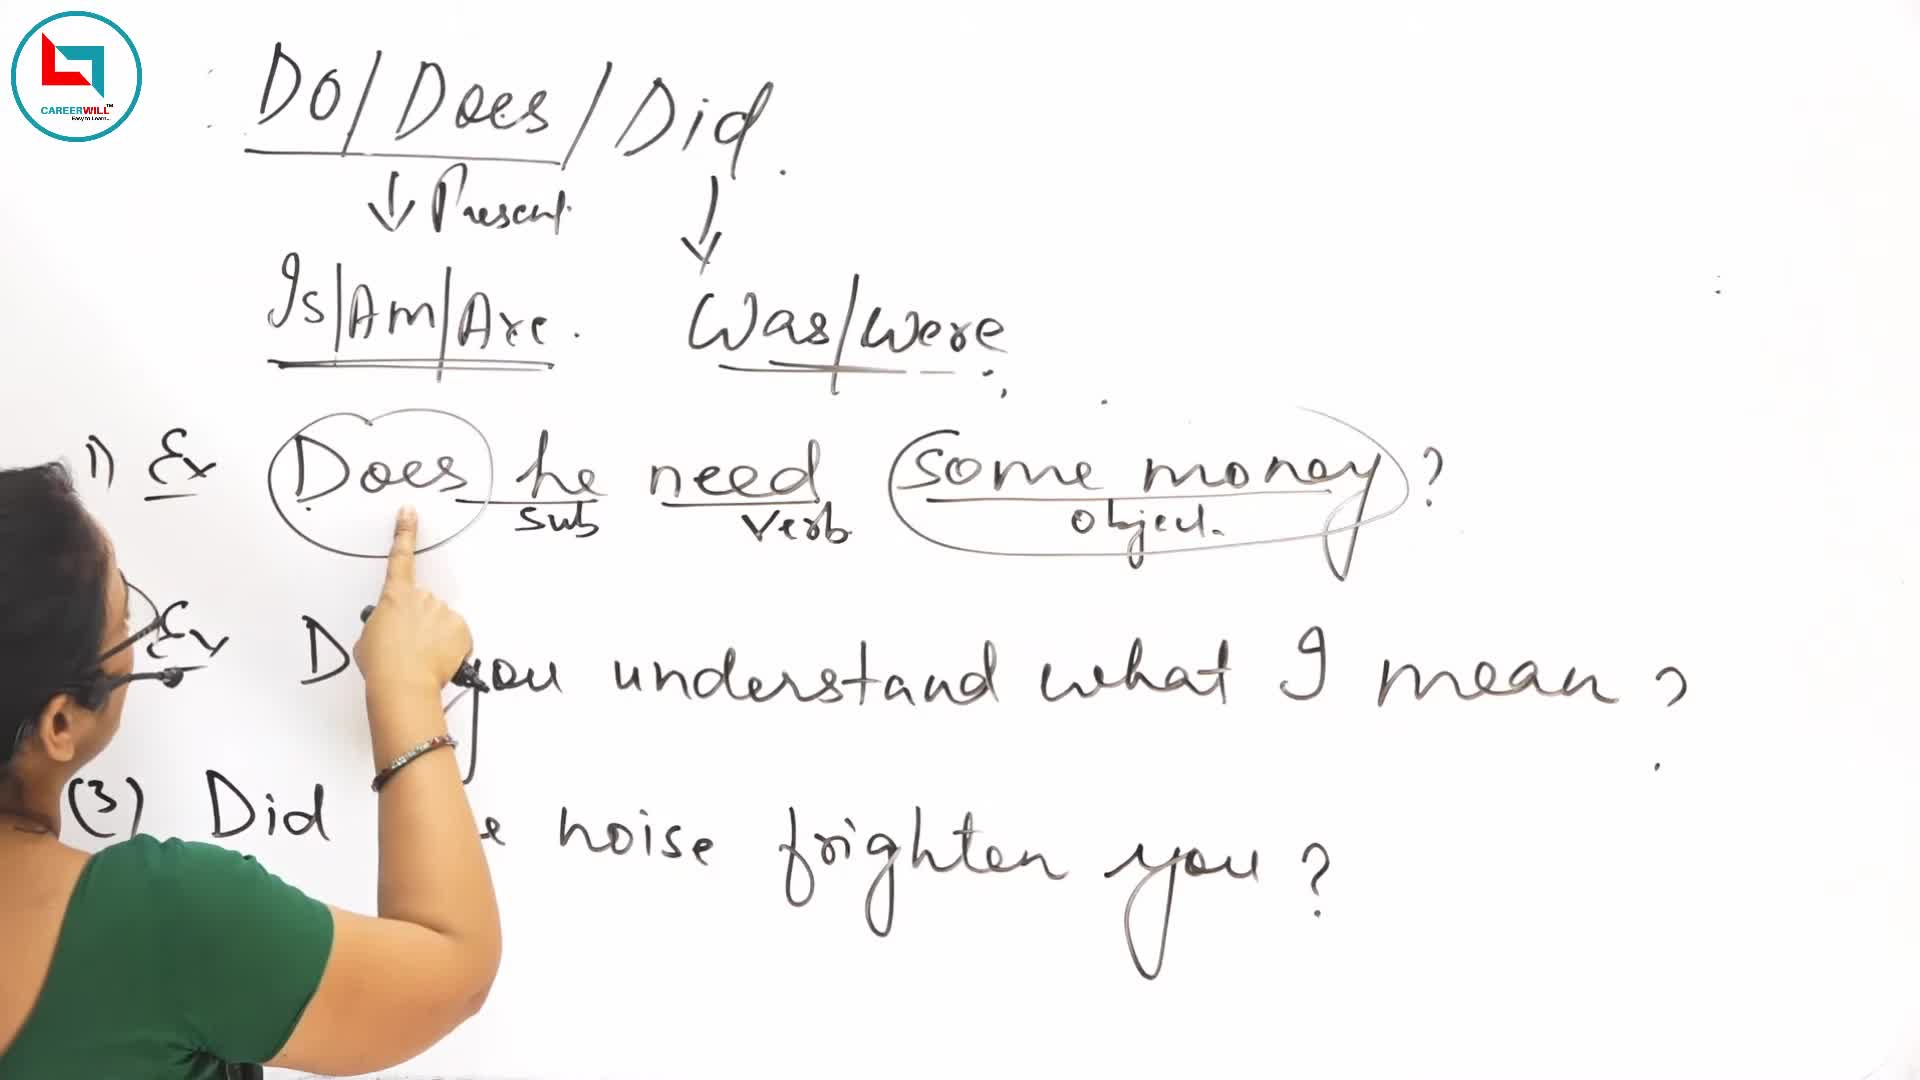 CAREERWILL™
Easy to Learn...
Do/Does/Did.
Present
Is/Am/Are. Was/Were
1) Ex Does he need some money?
Sub Verb Object.
Ex you understand what I mean?
(3) Did noise frighten you?